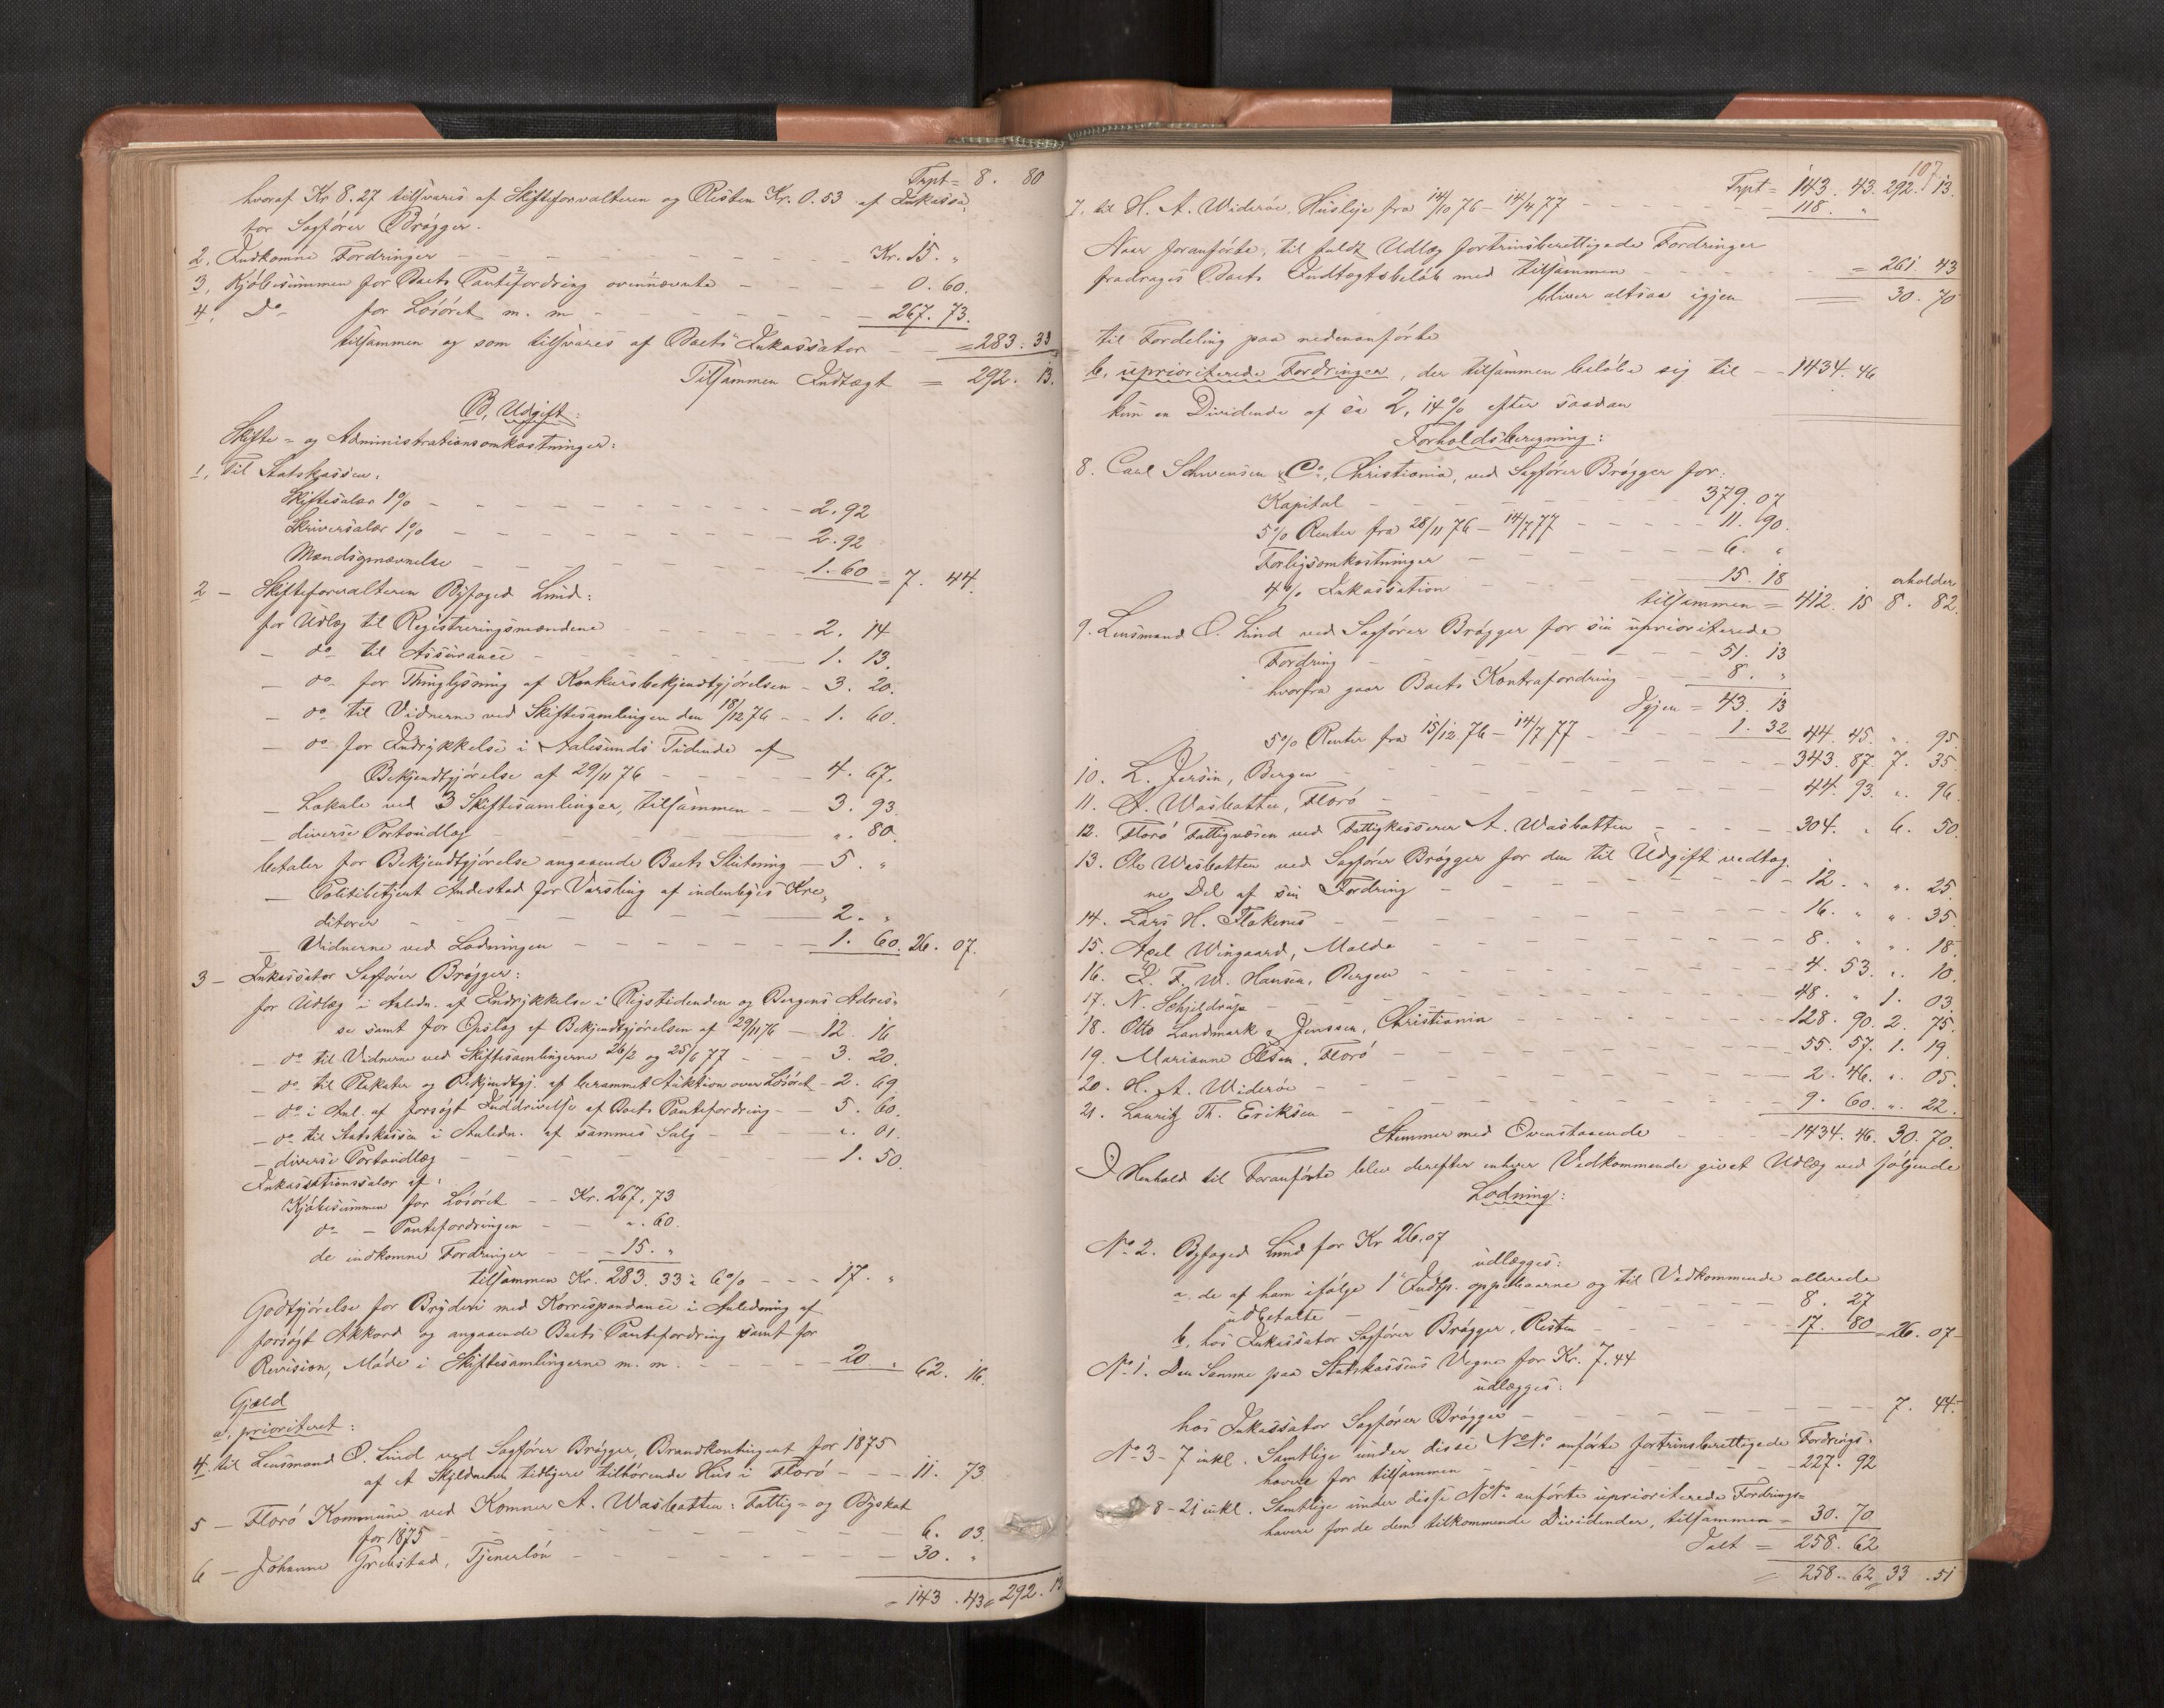 Trpt = 8. 80
hvoraf Kr 8.27 tilsvares af Skifteforvalteren og Resten Kr. 0.53 af Inkassa-
tor Sagfører Brøgger.
2. Indkomne Fordringer - - - Kr. 15. "
3. Kjøbesummen for Boets Pantefordring ovennævnte - - - 0. 60.
4. Do for Løsøret m. m. - - - 267. 73.
tilsammen og som tilsvares af Boets Inkassator - - = 283. 33
Tilsammen Indtægt = 292. 13.
B, Udgift:
Skifte- og Administrationsomkostninger:
1, Til Statskassen:
Skiftesalær 1% - - - 2.92
Skriversalær 1% - - - 2.92
Mandsopnævnelse - - - 1.60 = 7. 44.
2 - Skifteforvalteren Byfoged Lind:
for Udlæg til Registreringsmændene - - - 2. 14
- do til Assurance - - - 1. 13.
- do for Thinglysning af Konkursbekjendtgjørelsen - 3. 20.
- do til Vidnerne ved Skiftesamlingen den 18/12 76 - - 1. 60.
- do for Indrykkelse i Aalesunds Tidende af
Bekjendtgjørelse af 29/11 76 - - - 4. 67.
- Lokale ved 3 Skiftesamlinger, tilsammen - - 3. 93.
- diverse Portoudlæg - - - ". 80.
betaler for Bekjendtgjørelse angaaende Boets Slutning - 5. "
- Politibetjent Andestad for Varsling af indenbyes Kre-
ditorer - - - 2. "
- Vidnerne ved Lodningen - - - 1. 60. 26. 07.
3 - Inkassator Sagfører Brøgger:
for Udlæg i Anledn. af Indrykkelse i Rigstidenden og Bergens Adres-
se samt for Opslag af Bekjendtgjørelsen af 29/11 76 - 12. 16
- do til Vidnerne ved Skiftesamlingerne 26/2 og 25/6 77 - - - 3. 20.
- do til Plakater og Bekjendtgj. af berammet Auktion over Løsøret - 2. 69
- do i Anl. af forsøgt Inddrivelse af Boets Pantefordring - - 5. 60.
- do til Statskassen i Anledn. af sammes Salg - - - ". 01.
- diverse Portoudlæg - - - 1. 50.
Inkassationssalær af:
Kjøbesummen for Løsøret - - Kr. 267, 73
do - Pantefordringen - - ". 60.
de indkomne Fordringer - - 15. "
tilsammen Kr. 283. 33 à 6% - - - 17. "
Godtgjørelse for Bryderi med Korrespondance i Anledning af
forsøgt Akkord og angaaende Boets Pantefordring samt for
Revision, Møde i Skiftesamlingerne m. m. - - - 20. " 62. 16.
Gjæld
a, prioriteret:
4. til Lensmand O. Lind ved Sagfører Brøgger, Brandkontingent for 1875
af et Skyldneren tidligere tilhørende Hus i Florø - - - 11. 73
5 - Florø Kommune ved Kemner A. Wasbotten: Fattig- og Byskat
for 1875 - - - 6. 03.
6 - Johanne Grebstad, Tjenerløn - - - 30. "
= 143. 43 = 292. 13
107.
Trpt = 143. 43. 292. 13.
7, til H. A. Widerøe, Husleje fra 14/10 76 - 14/4 77 - - - 118. "
Naar foranførte, til fuldt Udlæg fortrinsberettigede Fordringer
fradrages Boets Indtægtsbeløb med tilsammen - - - = 261. 43
bliver altsaa igjen - - - 30. 70
til Fordeling paa nedenanførte
b, uprioriterede Fordringer, der tilsammen beløbe sig til - - 1434. 46
kun en Dividende af ca 2, 14% efter saadan
Forholdsberegning:
8. Carl Schwensen & Co, Christiania, ved Sagfører Brøgger for:
Kapital - - - 379. 07
5% Renter fra 28/11 76 - 14/7 77 - - - 11. 90.
Forligsomkostninger - - - 6. "
4% Inkassation - - - 15. 18 erholder
tilsammen = 412. 15 8. 82.
9. Lensmand O. Lind ved Sagfører Brøgger for sin uprioriterede
Fordring - - - 51. 13
hvorfra gaar Boets Kontrafordring - - - 8. "
Igjen = 43. 13
5% Renter fra 15/12 76 - 14/7 77 - - - 1. 32 44. 45. ". 95.
10. L. Jersin, Bergen - - - 343. 87. 7. 35.
11. A. Wasbotten, Florø - - - 44. 93. ". 96.
12. Florø Fattigvæsen ved Fattigkasserer A. Wasbotten - - - 304. " 6. 50.
13. Ole Wasbotten ved Sagfører Brøgger for den til Udgift vedtag-
ne Del af sin Fordring - - - 12. " ". 25.
14. Lars H. Flokenes - - - 16. " ". 35.
15. Axel Wingaard, Molde - - - 8. " ". 18.
16. J. F. W. Hansen, Bergen - - - 4. 53. ". 10.
17. N. Schjeldrup - - - 48. " 1. 03.
18. Otto Landmark & Jenssen, Christiania - - - 128. 90. 2. 75.
19. Marianne Olsen, Florø - - - 55. 57. 1. 19.
20. H. A. Widerøe - - - 2. 46. ". 05.
21. Lauritz Th. Eriksen - - - 9. 60. ". 22.
Stemmer med Ovenstaaende - - - 1434. 46. 30. 70.
I Henhold til Foranførte blev derefter enhver Vedkommende givet Udlæg ved følgende
Lodning:
No 2. Byfoged Lind for Kr 26.07
udlægges:
a. de af ham ifølge 1ste Indtp. oppebaarne og til Vedkommende allerede
udbetalte - - - 8. 27
b, hos Inkassator Sagfører Brøgger, Resten - - - 17. 80 = 26. 07
No 1. Den Samme paa Statskassens Vegne for Kr. 7.44
udlægges:
hos Inkassator Sagfører Brøgger - - - 7. 44.
No 3 - 7 inkl. Samtlige under disse No No anførte fortrinsberettigede Fordrings-
havere for tilsammen - - - 227. 92
8 - 21 inkl. Samtlige under disse No No anførte uprioriterede Fordrings-
havere for de dem tilkommende Dividender, tilsammen = 30. 70
Ialt = 258. 62
= 258. 62 = 33. 51